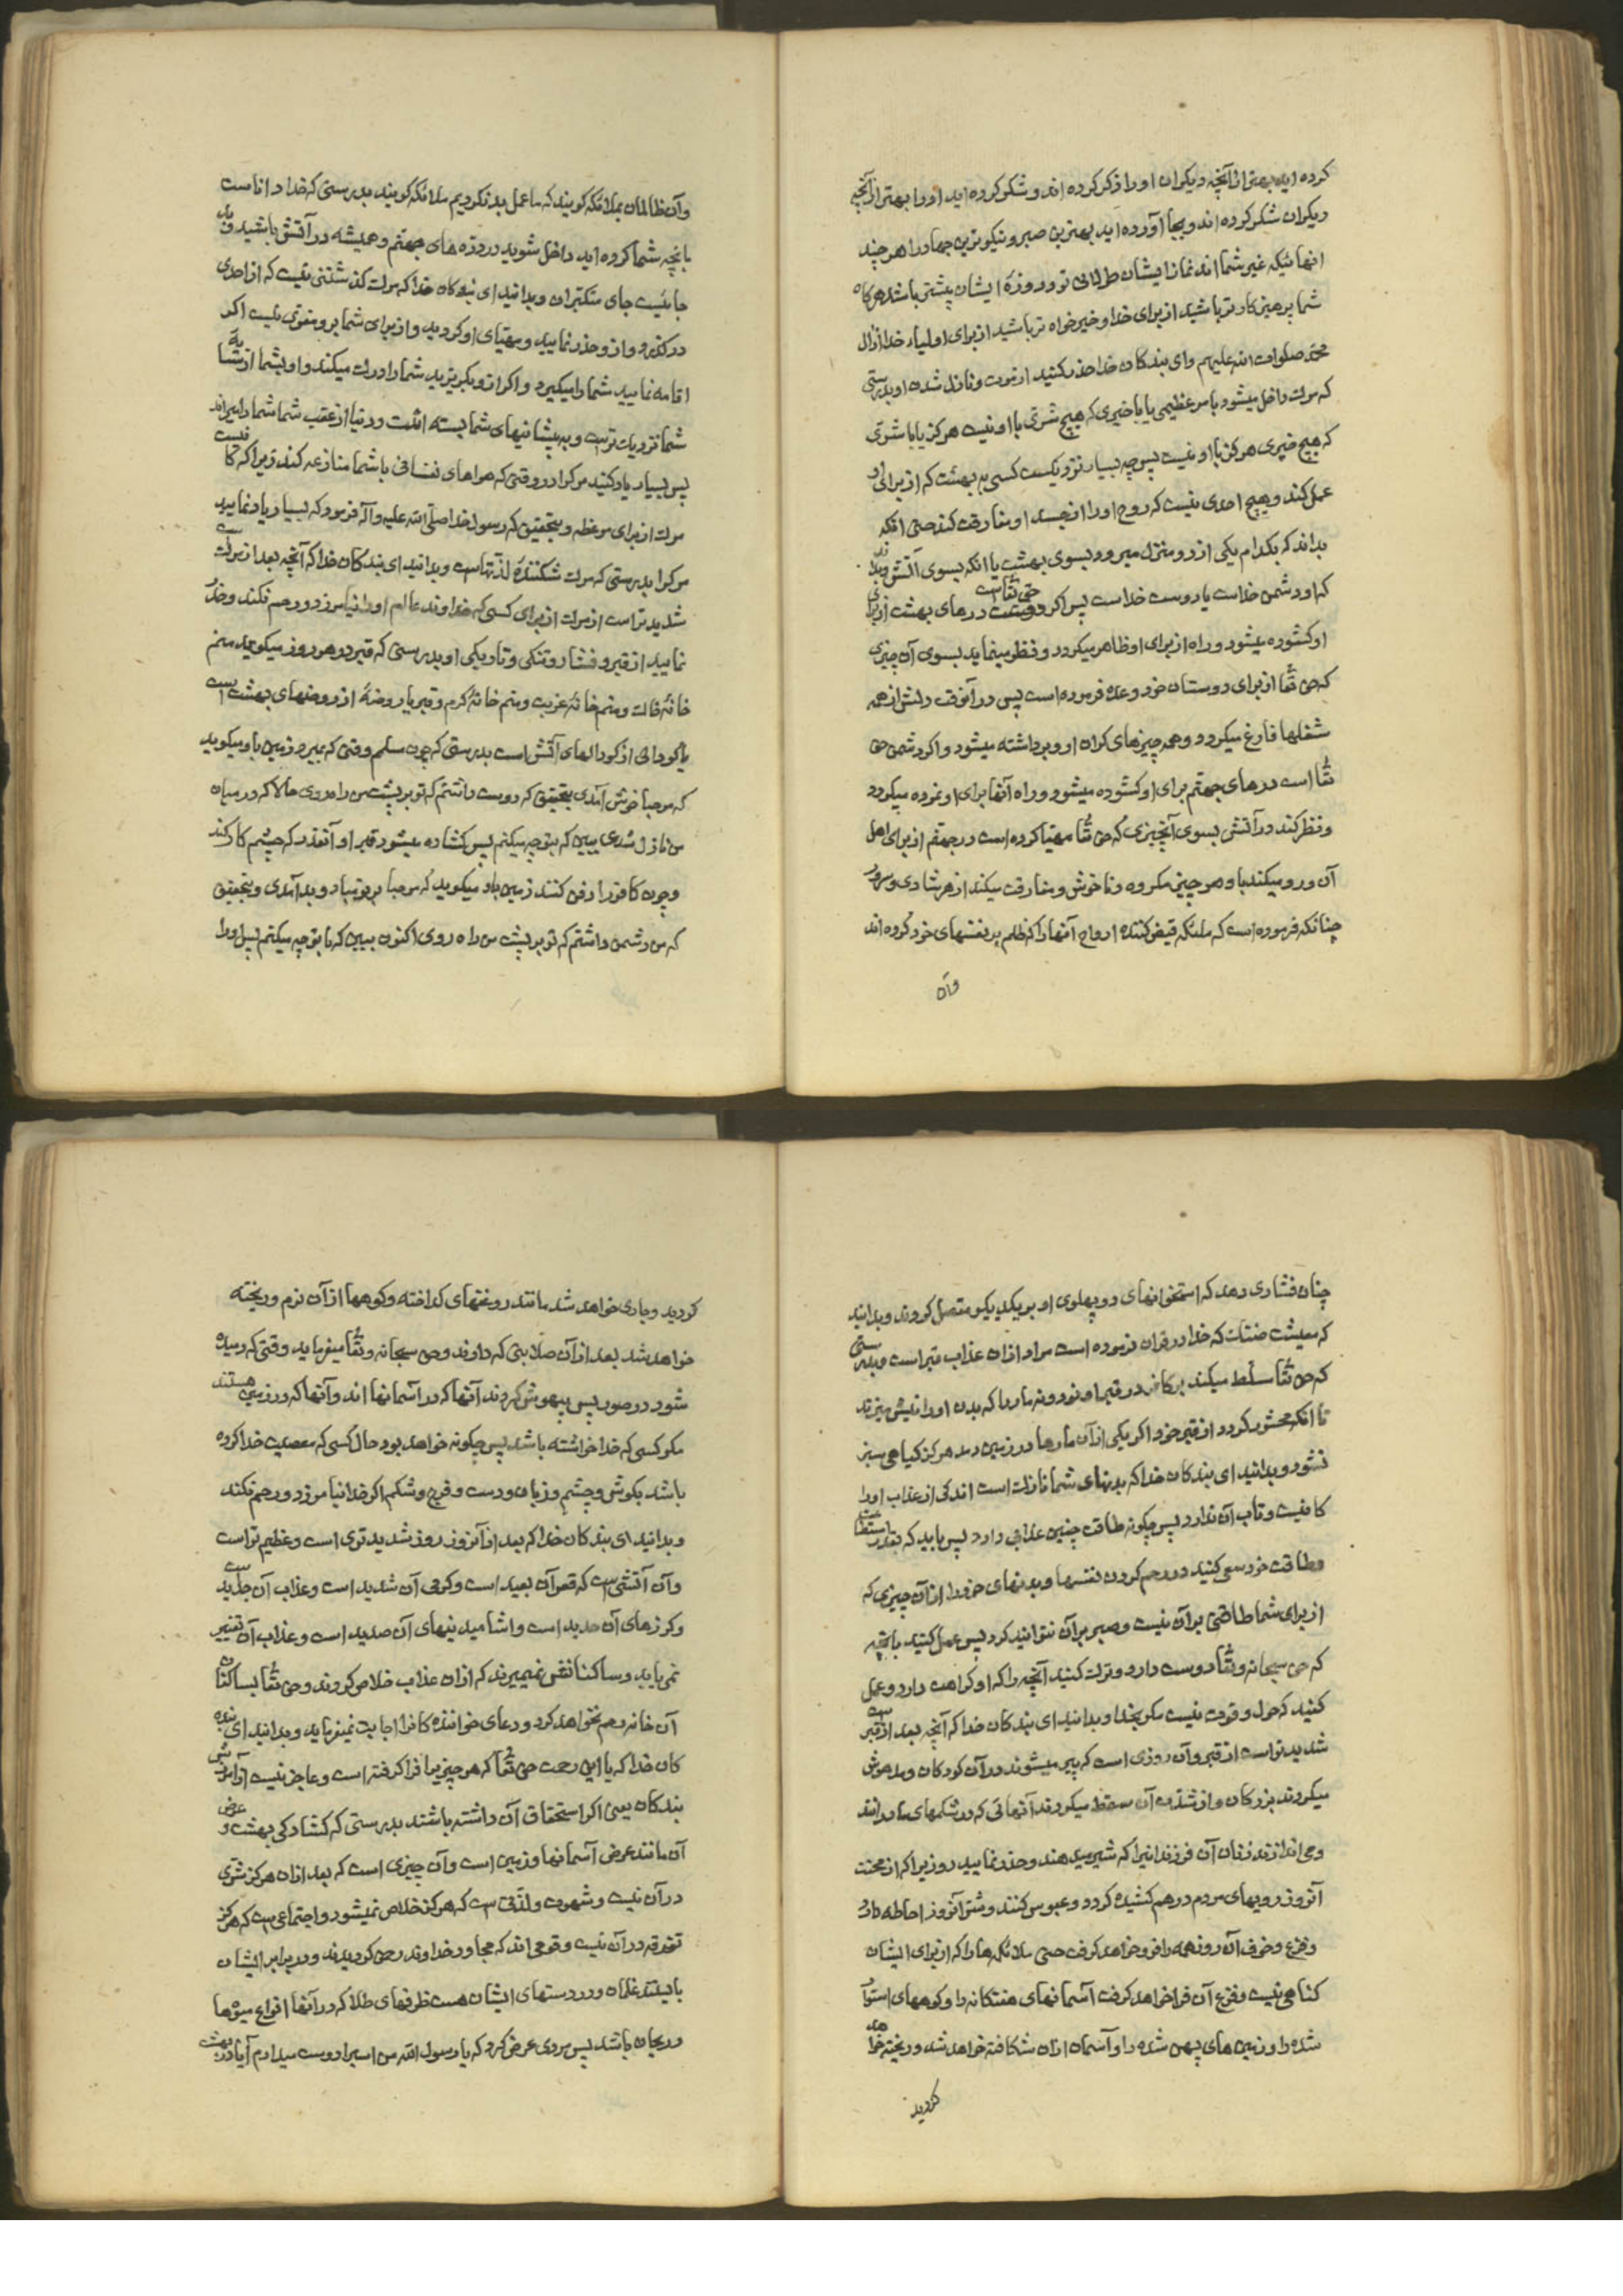 کرده اید بهتر از آنچه دیکران اورا ذکر کرده اند و شکر کرده اید اورا بهتر از آنچه
دیکران شکر کرده اند و بجا آورده اید بهترین صبر و نیکوترین جهاد را هر چند
انهائیکه غیر شما اند نماز ایشان طولانی تر و روزهٔ ایشان بیشتر باشد هرکاه
شما پرهیزکارتر باشید از برای خدا و خیرخواه تر باشید از برای اولیاء خدا از ال
محمد صلوات الله علیهم و ای بندکان خدا حذر کنید از موت و نازل شدن او بدرستی
که موت داخل میشود بامر عظیمی یا با خیری که هیچ شرّی با او نیست هرکز یا با شرّی
که هیچ خیری هرکز با او نیست پس چه بسیار نزدیکست کسی به بهشت که از برای او
عمل کند و هیچ احدی نیست که روح او را از جسد او مفارقت کند حتی انکه
بداند که بکدام یکی از دو منزل میرود بسوی بهشت یا انکه بسوی آتش و بداند
که او دشمن خداست یا دوست خداست پس اکر دوست حق تعالی است درهای بهشت از برای
او کشوده میشود و راه از برای او ظاهر میکردد و نظر مینماید بسوی آن چیزی
که حق تعا از برای دوستان خود وعده فرموده است پس در آنوقت دلش از همه
شغلها فارغ میکردد و همه چیزهای کران از او برداشته میشود و اکر دشمن حق
تعا است درهای جهنم برای او کشوده میشود و راه آنها برای او نموده میکردد
و نظر کند در آتش بسوی آنچیزی که حق تعا مهیّا کرده است در جهنم از برای اهل
آن و رو میکند باو هر چیز مکروه و ناخوش و مفارقت میکند از هر شادی و سرور
چنانکه فرموده است که ملئکه قبض کننده ارواح آنها را که ظلم بر نفسهای خود کرده اند
و آن
و آن ظالمان بملائکه کویند که ما عمل بد نکردیم ملائکه کویند بدرستی که خدا داناست
بانچه شما کرده اید داخل شوید در دروازه های جهنم و همیشه در آتش باشید و بد
جائیست جای متکبران و بدانید ای بندکان خدا که موت کذشتنی نیست که از احدی
درکذرد و از او حذر نمایید و مهیّای او کردید و از برای شما بر و مفری نیست اکر
اقامه نمایید شما را میکیرد و اکر از او بکریزید شما را درک میکند و او بشما از سایهٔ
شما نزدیک تر است و به پیشانیهای شما بسته است و دنیا از عقب شما شما را میراند
پس بسیار یاد کنید مرک را در وقتی که هواهای نفسانی با شما منازعه کند زیرا که کافیست
موت از برای موعظه و بتحقیق که رسول خدا صلّی الله علیه و آله فرمود که بسیار یاد نمایید
مرک را بدرستی که موت شکنندهٔ لذتهاست و بدانید ای بندکان خدا که آنچه بعد از موتست
شدیدتر است از موت از برای کسی که خداوند عالم او را نیامرزد و رحم نکند و حذر
نمایید از قبر و فشار و تنکی و تاریکی او بدرستی که قبر در هر روز میکوید منم
خانهٔ خاک و منم خانهٔ غربت و منم خانهٔ کرم و قبر یا روضهٔ از روضهای بهشت است
یا کودالی از کودالهای آتش است بدرستی که چون مسلم وقتی که بمیرد زمین باو میکوید
که مرحبا خوش آمدی بتحقیق که دوست داشتم که تو بر پشت من راه روی حالا که در میان
من نازل شدی ببین که بتو چه میکنم پس کشاده میشود قبر او آنقدر که چشم کار کند
و چون کافر را دفن کنند زمین باو میکوید که مرحبا بر تو مباد و بد آمدی و بتحقیق
که من دشمن داشتم که تو بر پشت من راه روی اکنون ببین که با تو چه میکنم پس او را
چنان فشاری دهد که استخوانهای دو پهلوی او بر یکدیکر متصل کردند و بدانید
که معیشت ضنک که خدا در قران فرموده است مراد از ان عذاب قبر است و بدرستی
که حق تعا مسلّط میکند بر کافر در قبر او نود و نه مار را که بدن او را نیش میزند
تا انکه محشور کردد از قبر خود اکر یکی از آن مارها در زمین دمد هرکز کیاهی سبز
نشود و بدانید ای بندکان خدا که بدنهای شما نازک است اندکی از عذاب او را
کافیست و تاب آن ندارد پس چکونه طاقت چنین عذابی دارد پس باید که بقدر استطاعت
و طاقت خود سعی کنید در رحم کردن نفسها و بدنهای خود را از آن چیزی که
از برای شما طاقتی بر آن نیست و صبر بر آن نتوانید کرد پس عمل کنید بانچه
که حق سبحانه و تعا دوست دارد و ترک کنید آنچه را که او کراهت دارد و عمل
کنید که حول و قوت نیست مکر بخدا و بدانید ای بندکان خدا که آنچه بعد از قبر است
شدیدتر است از قبر و آن روزی است که پیر میشوند در آن کودکان و مدهوش
میکردند بزرکان و از شدت آن سقط میکردند آنهائی که در شکمهای مادرانند
و می اندازند زنان آن فرزندانیرا که شیر میدهند و حذر نمایید روزیرا که از محنت
آنروز رویهای مردم درهم کشیده کردد و عبوس کنند و شر آنروز احاطه دارد
و فزع و خوف آن روز همه را فرو خواهد کرفت حتی ملائکه ها را که از برای ایشان
کناهی نیست و فزع آن فرا خواهد کرفت آسمانهای هفتکانه را و کوههای استوار
شده را و زمین های پهن شده را و آسمان از ان شکافته خواهد شد و ریخته خواهد
کردید
کردید و جاری خواهد شد مانند روغنهای کداخته و کوهها از آن نرم و ریخته
خواهد شد بعد از آن صلابتی که دارند و حق سبحانه و تعا میفرماید وقتی که دمیده
شود در صور پس بیهوش کردند آنها که در آسمانها اند و آنها که در زمین هستند
مکر کسی که خدا خواسته باشد پس چکونه خواهد بود حال کسی که معصیت خدا کرده
باشد بکوش و چشم و زبان و دست و فرج و شکم اکر خدا نیامرزد و رحم نکند
و بدانید ای بندکان خدا که بعد از آنروز روز شدیدتری است و عظیم تر است
و آن آتشی است که قعر آن بعید است و کرمی آن شدید است و عذاب آن جدید است
و کرزهای آن حدید است و اشامیدنیهای آن صدید است و عذاب آن تغییر
نمی یابد و ساکنانش نمیمیرند که از ان عذاب خلاص کردند و حق تعا بساکنان
آن خانه رحم نخواهد کرد و دعای خوانندهٔ کافر را اجابت نمیفرماید و بدانید ای بنده
کان خدا که با این رحمت حق تعا که هر چیز را فرا کرفته است و عاجز نیست از آمرزش
بندکان یعنی اکر استحقاق آن داشته باشند بدرستی که کشادکی بهشت و عرض
آن مانند عرض آسمانها و زمین است و آن چیزی است که بعد از ان هرکز شری
در آن نیست و شهوت و لذتی است که هرکز خلاص نمیشود و اجتماعی است که هرکز
تفرقه در آن نیست و قومی اند که مجاور خداوند رحمن کردیدند و در برابر ایشان
بایستند غلمان و در دستهای ایشان هست ظرفهای طلا که در آنها انواع میوها
و ریحان باشد پس مردی عرض کرد که یا رسول الله من اسب را دوست میدارم آیا در بهشت